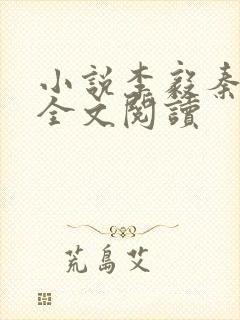 小說李毅秦
全文閱讀
荒島艾